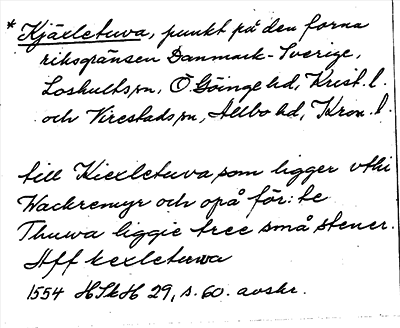 * Kjäxletuva, punkt på den forna
riksgränsen Danmark-Sverige,
Loshults sn, Ö Göinge hd, Krist. l.
och Virestads sn, Allbo hd, Kron. l.
till Kiexletuva som ligger vthi
Wackremyr och opå för:te
Thuwa liggie tree små stener.
Aff kexletuwa
1554 HSkH 29, s. 60. avskr.